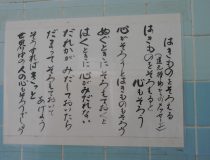 はきものをそろえる
はきものをそろえると
心もそろう
心がそろうと
はきものもそろう
ぬぐときに そろえておくと
はくときに 心がみだれない
だれかが みだしておいたら
だまって そろえておいて
あげよう
そうすればきっと
世界中の人の心もそろうでしょう